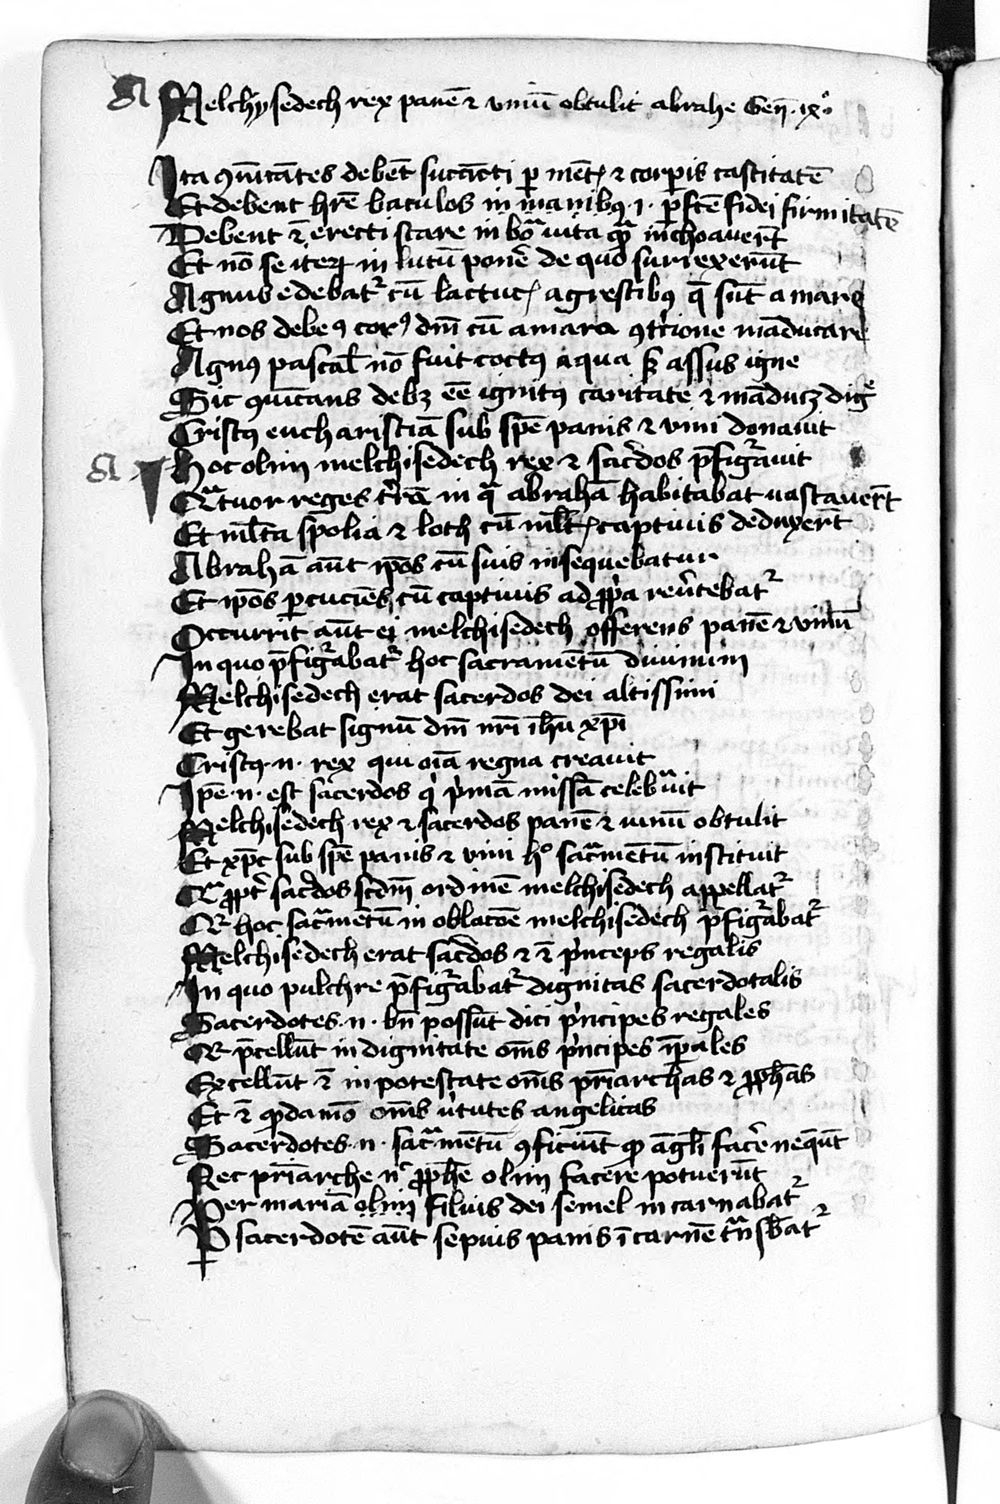 Melchysedech rex panē et vinū obtulit abrahe Geñ. ix°.
Ita ꝯmūicātes debēt succīcti ꝑ mētꝭ et corꝑis castitatē
Et debent hr̄e baculos in manibꝰ .i. ꝑfctē fidei firmitatē
Debent et̄ erecti stare in bōa vita quā inchoauerūt
Et nō se iteꝝ in lutū ponē de quo surrexerūt
Agnus edebatr cū lactucꝭ agrestibꝰ q̄ sūt amare
Et nos debemꝰ corpꝰ dn̄i cū amara ꝯtricione māducare
Agnꝰ pascal̄ nō fuit coctꝰ aqua sꝫ assus igne
Sic ꝯmūicans debꝫ eē ignitꝰ caritate et māducꝫ digē
Cristꝰ eucharistiā sub spē panis et vini donauit
Hoc olim melchisedech rex et sacerdos p̄figurauit
Quatuor reges terrā in qua abrahā habitabat uastauerūt
Et ml̄ta spolia et loth cū ml̄tꝭ captiuis deduxerūt
Abrahā aūt ip̄os cū suis insequebatur
Et ip̄os ꝑcuciēs cū captiuis ad ꝓpria reuertebatr
Occurrit aūt ei melchisedech offerens panē et vinū
In quo p̄figurabatr hoc sacramētū diuinum
Melchisedech erat sacerdos dei altissimi
Et gerebat signū dn̄i nr̄i ih̄u xp̄i
Cristꝰ .n. rex qui oīa regna creauit
Ip̄e .n. est sacerdos qui primā missā celebrauit
Melchisedech rex et sacerdos panē et uinū obtulit
Et xp̄c sub spē panis et vini h° sacramētū instituit
Quaꝓpter sacerdos scdm̄ ordinē melchisedech appellatr
Quia hoc sacramētū in oblacōe melchisedech p̄figurabatr
Melchisedech erat sacerdos et et̄ princeps regalis
In quo pulchre p̄figurabatr dignitas sacerdotalis
Sacerdotes .n. bn̄ possūt dici principes regales
Quia p̄cellūt in dignitate om̄s principes īꝑales
Excellūt et̄ in potestate om̄s pr̄iarchas et ꝓph̄as
Et et̄ quodāmō om̄s uirtutes angelicas
Sacerdotes .n. sacramētū ꝯficiūt quod āgl̄i facere neq̄ūt
Nec pr̄iarche nec ꝓph̄e olim facere potuerūt
Per mariā olim filius dei semel incarnabatr
Ꝑ sacerdotē aūt sepius panis ī carnē trāsb̄atr